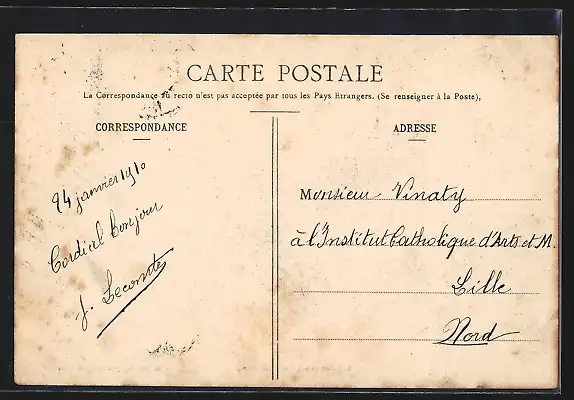 CARTE POSTALE
La Correspondance au recto n'est pas acceptée par tous les Pays Etrangers. (Se renseigner à la Poste),
CORRESPONDANCE
24 janvier 1910
Cordial bonjour
J. Lecomte
ADRESSE
Monsieur Vinaty
à l'Institut Catholique d'Arts et M.
Lille
Nord